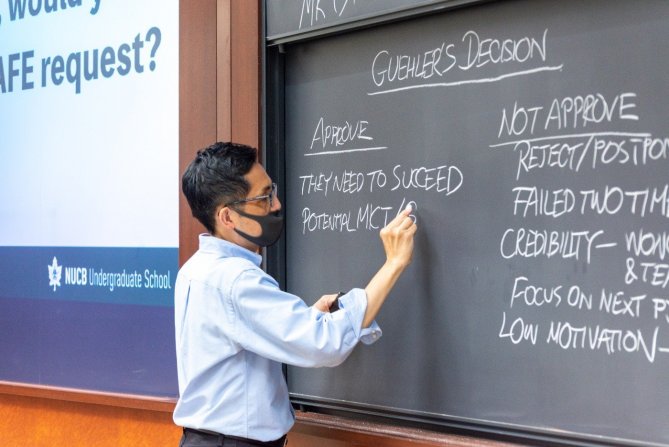 would y
AFE request?
NUCB Undergraduate School
MKT
GUEHLER'S DECISION
APPROVE
THEY NEED TO SUCCEED
POTENTIAL MKT
NOT APPROVE
REJECT/POSTPON
FAILED TWO TIME
CREDIBILITY –
& TE
FOCUS ON NEXT P
LOW MOTIVATION –